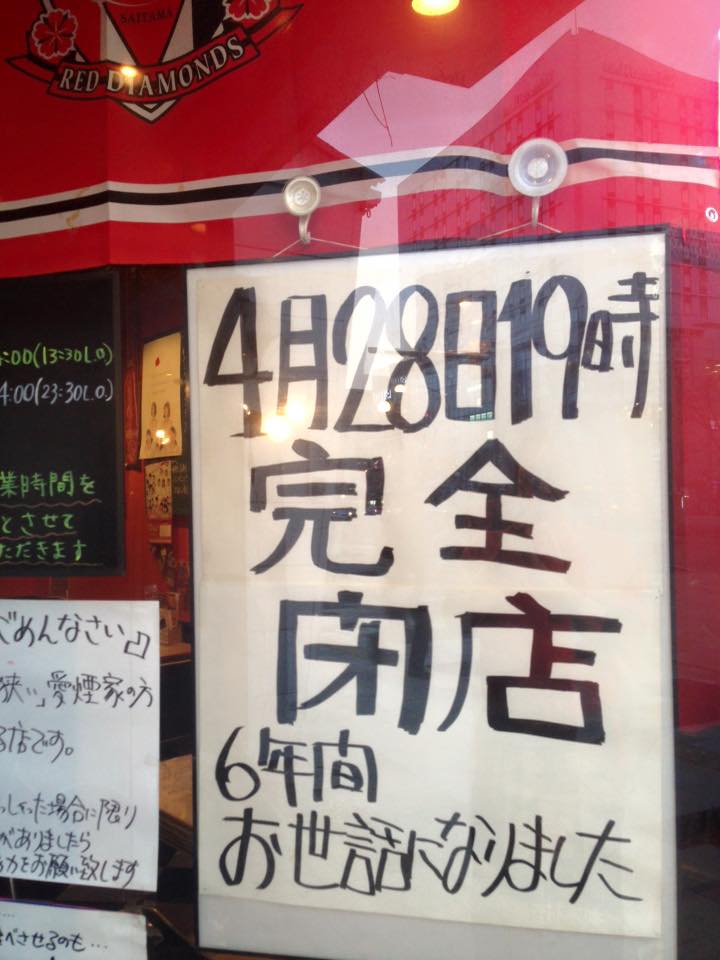 SAITAMA
RED DIAMONDS
4月28日19時
完全
閉店
6年間
お世話になりました
:00(13:30L.O)
4:00(23:30L.O.)
業時間を
とさせて
ただきます
ごめんなさい』
狭い」愛煙家の方
店です。
っしゃった場合に限り
がありましたら
力をお願い致します
べさせるのも…